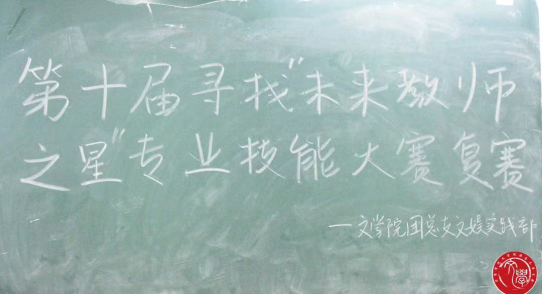 第十届寻找"未来教师
之星"专业技能大赛复赛
—文学院团总支文娱实践部